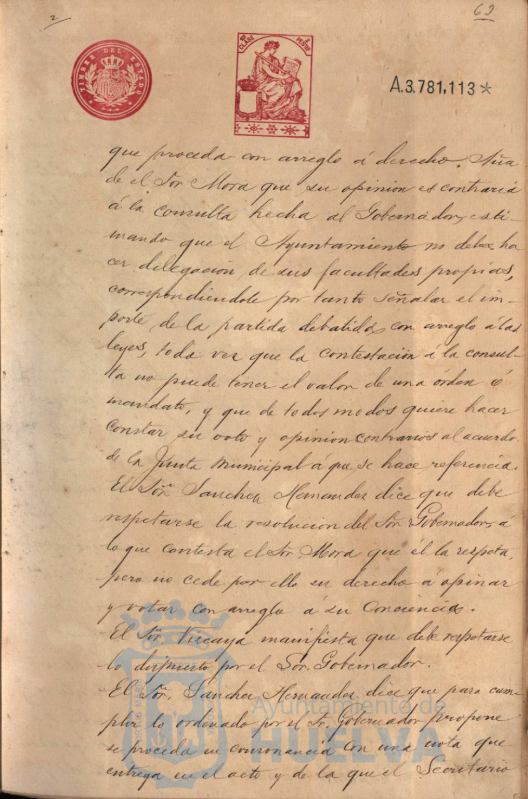 2
63
TIMBRE DEL ESTADO
10ª CLASE
PESETAS
A.3.781,113*
que proceda con arreglo á derecho. Aña
de el Sor. Mora que su opinion es contraria
á la consulta hecha al Gobernador, esti
mando que el Ayuntamiento no debe ha
cer delegación de sus facultades propias,
correspondiendole por tanto señalar el im-
porte, de la partida debatida, con arreglo á las
leyes, toda vez que la contestación á la consul-
ta no puede tener el valor de una órden ó
mandato, y que de todos modos quiere hacer
constar su voto y opinion contrarios al acuerdo
de la Junta municipal á que se hace referencia.
El Sor. Sanchez Hernandez dice que debe
respetarse la resolucion del Sor. Gobernador, á
lo que contesta el Sor. Mora que él la respeta,
pero no cede por ello su derecho á opinar
y votar con arreglo á su Conciencia.
El Sor. manifiesta que debe respetarse
lo dispuesto por el Sor. Gobernador.
El Sor. Sanchez Hernandez dice que para cum-
plir lo ordenado por el Sr. Gobernador propone
se proceda en consonancia con una nota que
entrega en el acto y de la que el Secretario
Ayuntamiento de
HUELVA